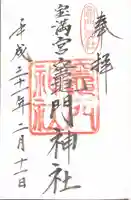 奉拝
宝満宮竈門神社
平成三十一年二月十一日